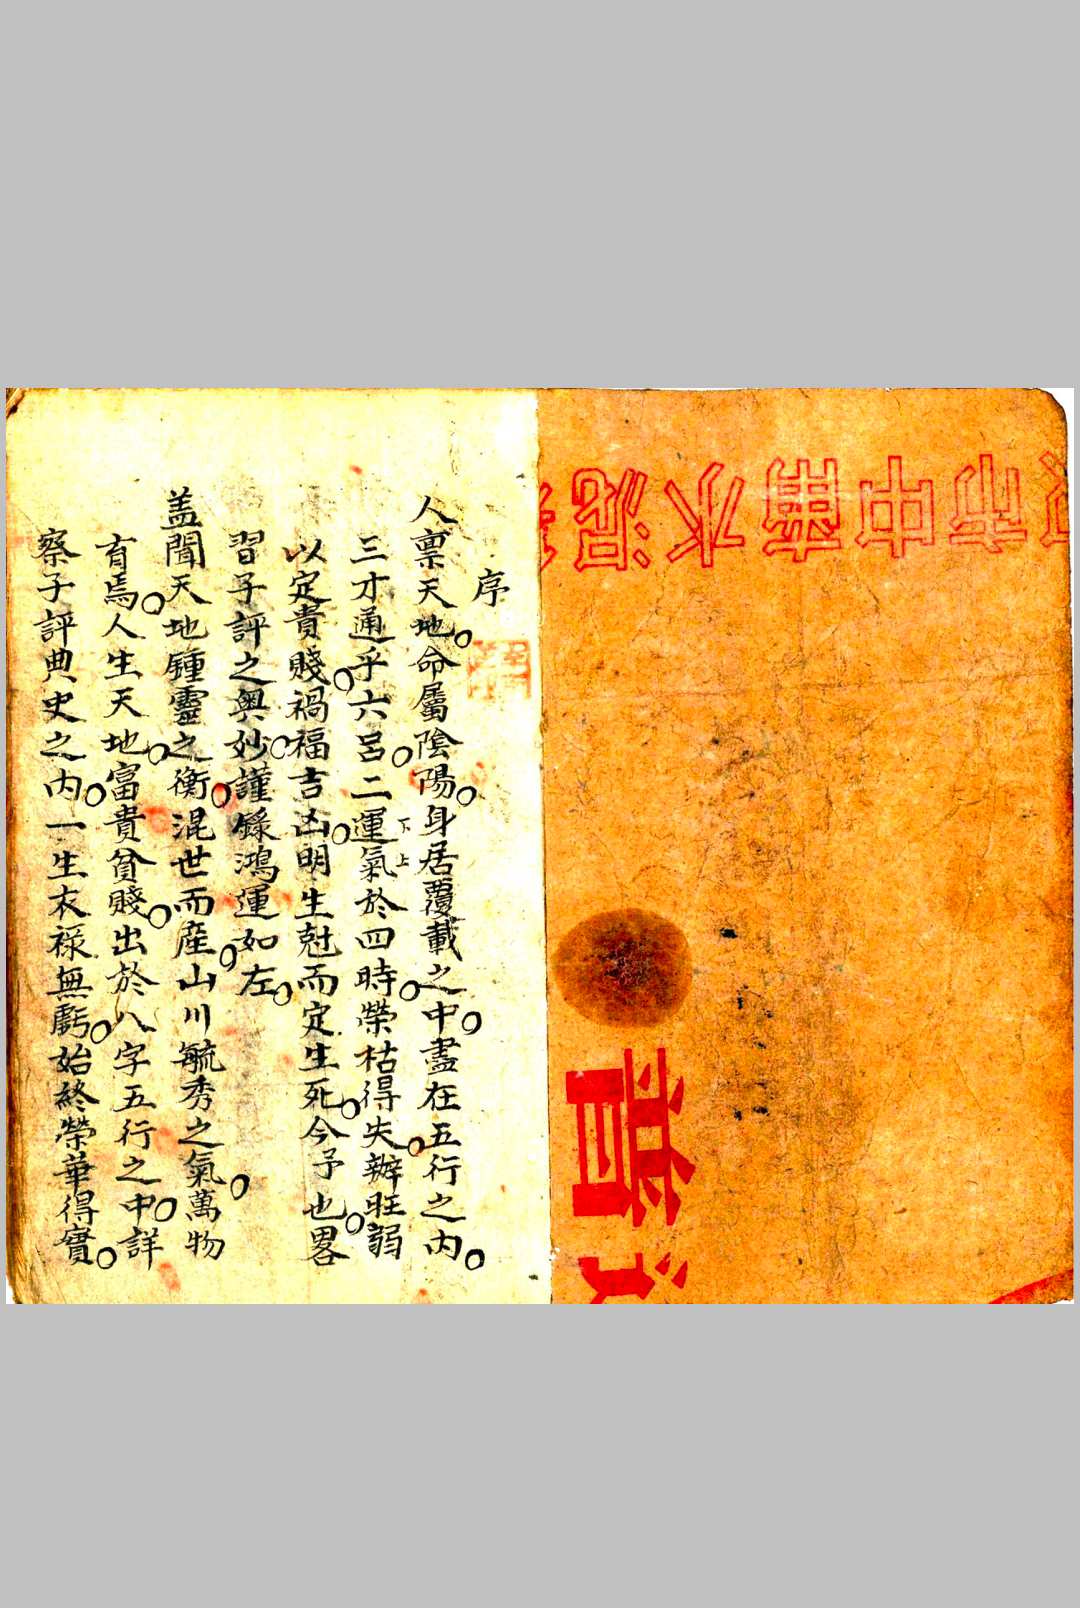 序
人禀天地。命屬陰陽。身居覆載之中。盡在五行之内。
三才通乎六呂。二運氣於四時。榮枯得失。辦旺弱
下上
以定貴賤。禍福吉凶。明生尅而定生死。今予也。畧
習子評之奥妙。謹錄鴻運如左。
盖聞天地鍾靈之衡。混世而産。山川毓秀之氣。萬物
有焉。人生天地。富貴貧賤。出於八字五行之中。詳
察子評典史之内。一生衣禄無虧。始終榮華得實。